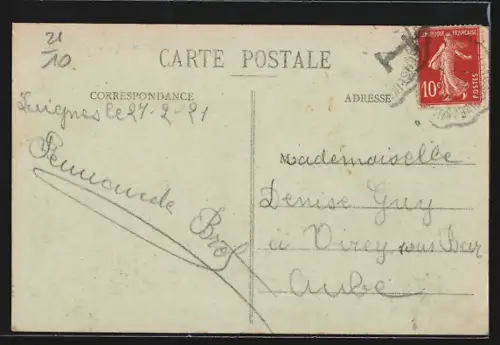 21
/10
CARTE POSTALE
CORRESPONDANCE
ADRESSE
RÉPUBLIQUE FRANÇAISE
10c
POSTES
T
le 27-2-21
Mademoiselle
Denise Guy
à Virey sous Bar
Aube